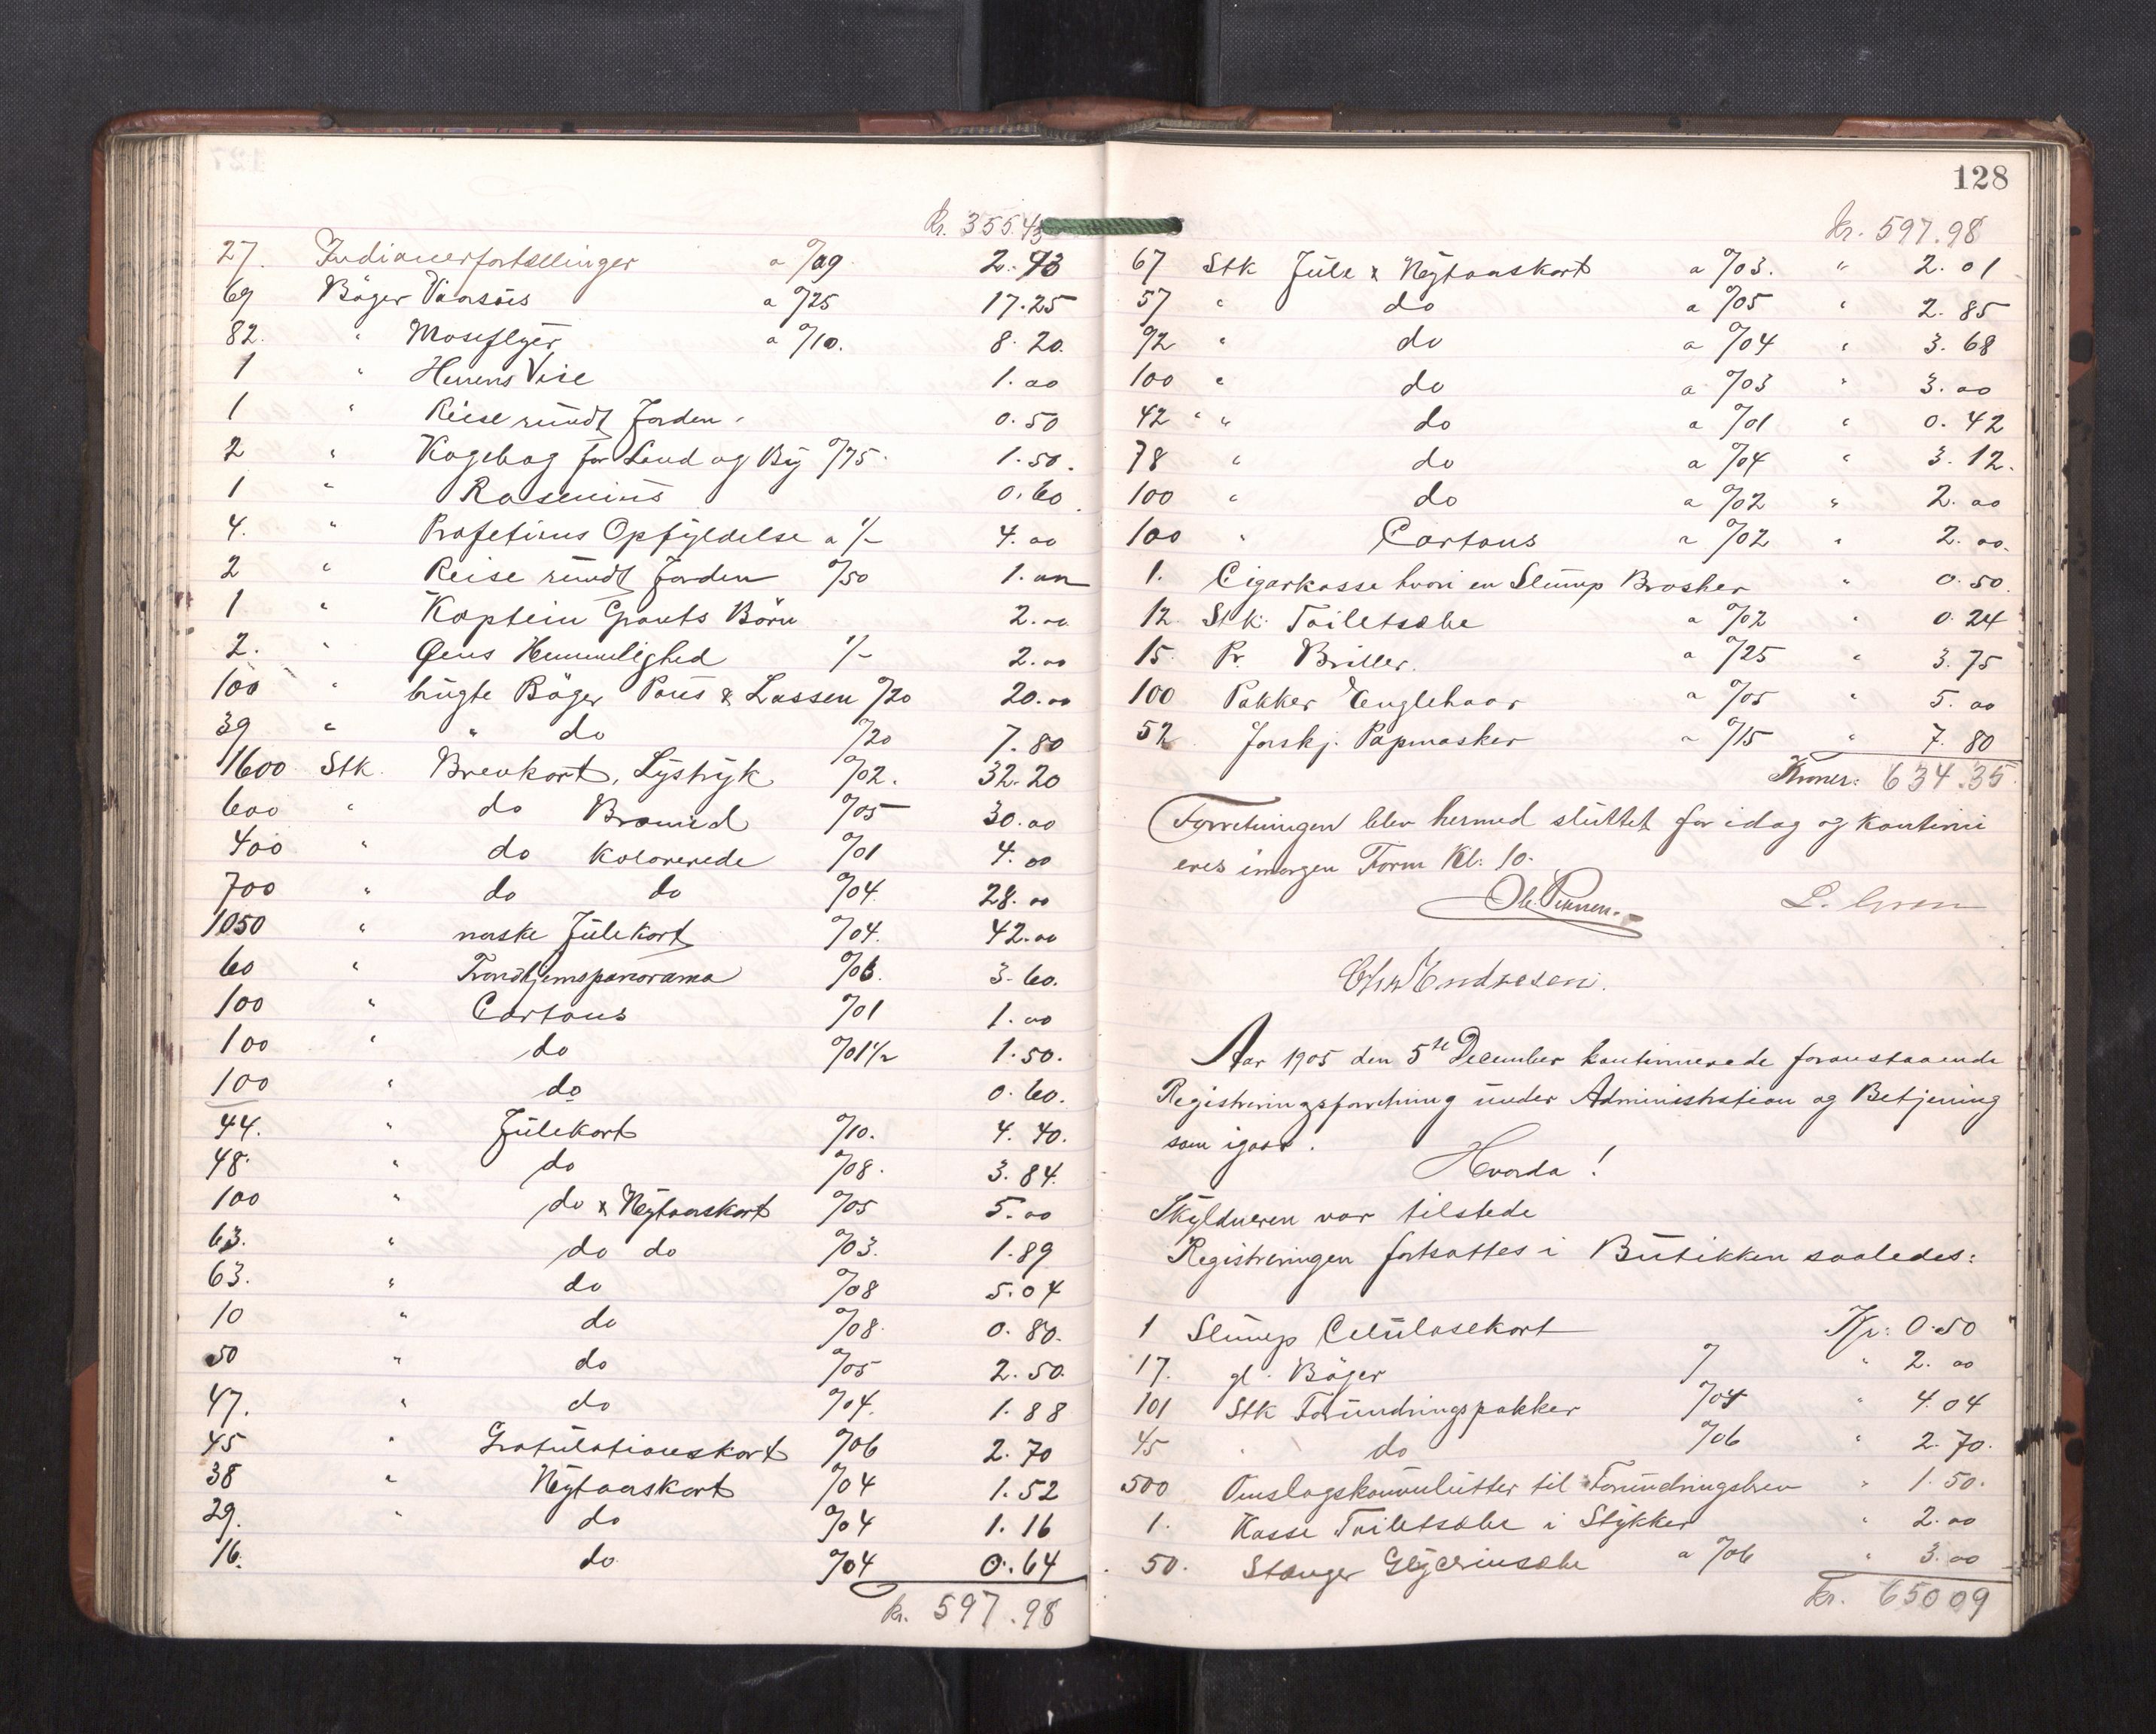 kr. 355.43
27. Indianerfortællinger a 0/09 2.43
69 Bøger Vaarsøis a 0/25 17.25
82. " Moseflyer a 0/10. 8.20.
1 " Herrens Veie 1.00
1 " Reise rundt Jorden 0.50
2 " Kogebog for Land og By 0/75 1.50.
1 " Rosenius 0.60
4. " Profetiens Opfyldelse a 1/- 4.00
2 " Reise rundt Jorden 0/50 1.00
1 " Kaptein Grants Børn 2.00
2. " Øens Hemmelighed 1/- 2.00
100 " brugte Bøger Pous & Lassen 0/20 20.00
39 " " do 0/20 7.80
1600 Stk. Brevkort, Lystryk 0/02. 32.20
600 " do Bromid 0/05 30.00
400 " do kolorerede 0/01 4.00
700 " do do 0/04 28.00
1050 " norske Julekort 0/04. 42.00
60 " Trondhjemspanorama 0/06. 3.60.
100 " Cartons 0/01 1.00
100 " do 0/01½ 1.50.
100 " do 0.60.
44. " Julekort 0/10. 4.40.
48. " do 0/08. 3.84.
100 " do & Nytaarskort 0/05 5.00
63. " do do 0/03. 1.89
63. " do 0/08 5.04
10 " do 0/08. 0.80.
50 " do 0/05 2.50.
47. " do 0/04. 1.88
45 " Gratulationskort 0/06 2.70
38 " Nytaarskort 0/04 1.52
29. " do 0/04 1.16
16. do 0/04 0.64
kr. 597.98
128
kr. 597.98
67 Stk Jule & Nytaarskort a 0/03. " 2.01
57 " do a 0/05 " 2.85
92 " do a 0/04 " 3.68
100 " do a 0/03 " 3.00
42 " " do a 0/01 " 0.42
78 " do a 0/04 " 3.12.
100 " do a 0/02 " 2.00
100 " Cartons a 0/02 " 2.00.
1. Cigarkasse hvori en Slump Brosher " 0.50.
12. Stk. Toiletsæbe a 0/02 " 0.24
15. Pr. Briller. a 0/25 " 3.75
100 Pakker Englehaar a 0/05 " 5.00
52 forskj. Papmasker a 0/15 " 7.80
Kroner: 634.35
Forretningen blev hermed sluttet for idag og kontinu
eres imorgen Form Kl. 10.
L.
Chr Endresen.
Aar 1905 den 5te December kontinuerede foranstaaende
Registreringsforretning under Administration og Betjening
som igaar.
Hvorda!
Skyldneren var tilstede
Registreringen fortsattes i Butikken saaledes:
1 Slump Celulosekort Kr: 0.50
17. gl. Bøger 0/ " 2.00
101 Stk Forundringspakker 0/04 " 4.04
45 " do 0/06 " 2.70.
500 Omslagskonvolutter til Forundringsbrev " 1.50.
1. Kasse Toiletsæbe i Stykker " 2.00
50. Stænger Glycerinsæbe a 0/06 " 3.00
kr. 65009